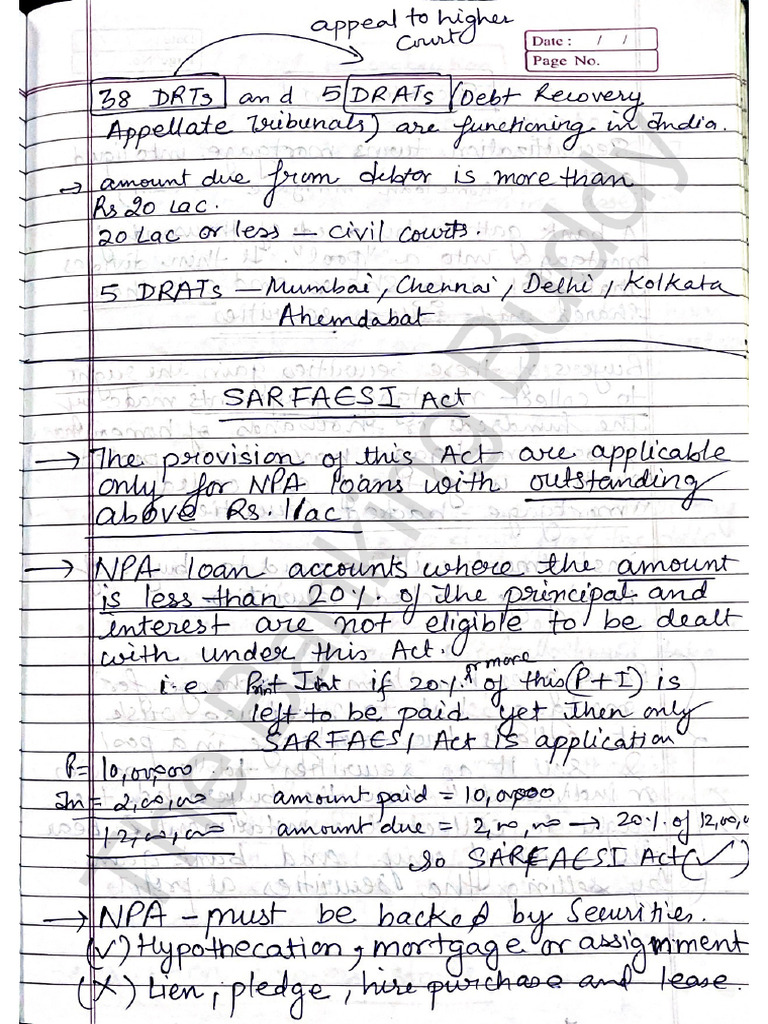 appeal to higher
Court
Date : / /
Page No.
38 DRTs and 5 DRATs (Debt Recovery
Appellate Tribunals) are functioning in India.
→ amount due from debtor is more than
Rs 20 Lac.
20 Lac or less – civil courts.
5 DRATs – Mumbai, Chennai, Delhi, Kolkata
Ahemdabat
SARFAESI Act
→ The provision of this Act are applicable
only for NPA loans with outstanding
above Rs. 1lac
→ NPA loan accounts where the amount
is less than 20%. of the principal and
interest are not eligible to be dealt
with under this Act.
or more
i.e. Print Int if 20%. of this (P+I) is
left to be paid yet then only
SARFAESI Act is application
P = 10,00,000
In = 2,00,000 amount paid = 10,00,000
12,00,000 amount due = 2,00,000 → 20%. of 12,00,0
so SARFAESI Act (✓)
→ NPA – must be backed by Securities.
(✓) Hypothecation, mortgage or assignment
(X) Lien, pledge, hire purchase and lease.
The Banking Buddy